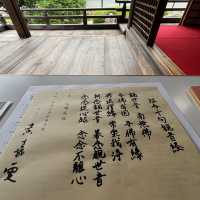 延命十句觀音経
觀世音 南無佛
与佛有因 与佛有縁
佛法僧縁 常樂我浄
朝念觀世音 暮念觀世音
念念從心起 念念不離心